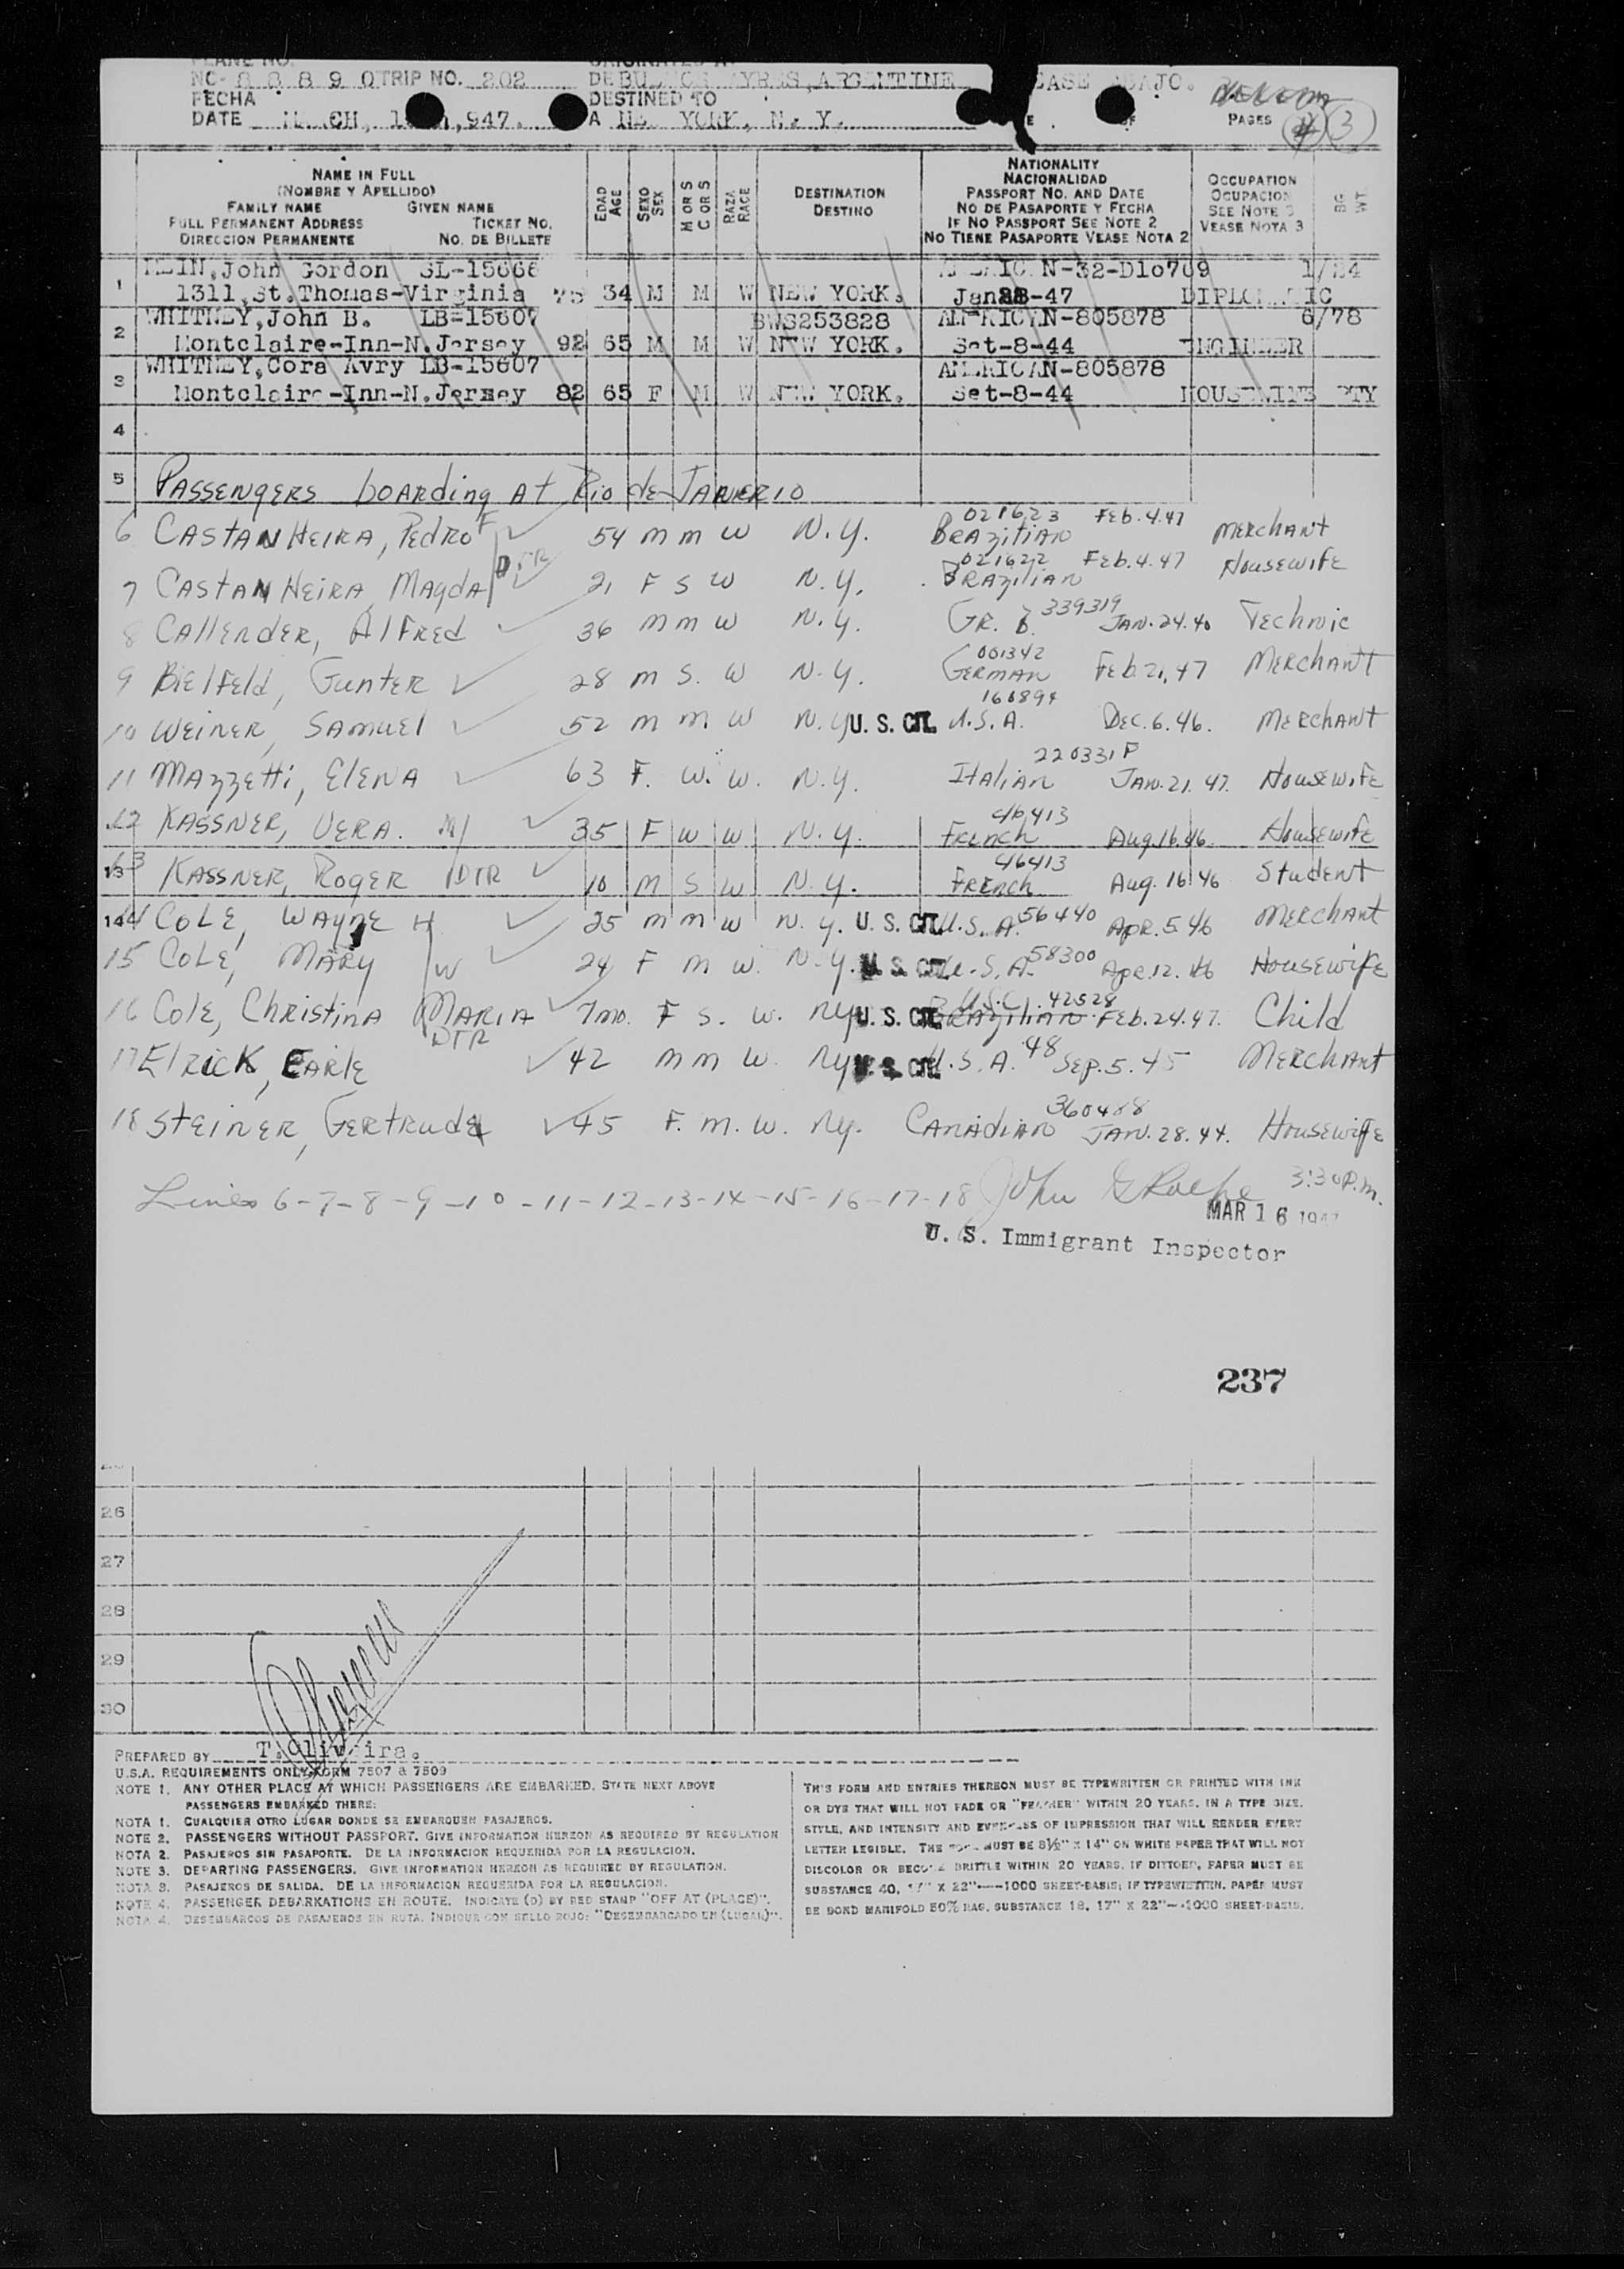 PLANE NO.
NC- 8 8 8 9 0 TRIP NO. 202 DE BUENOS AYRES, ARGENTINE
FECHA DESTINED TO
DATE MARCH, 947. A NEW YORK, N. Y. PAGES 3
NAME IN FULL
(NOMBRE Y APELLIDO)
FAMILY NAME GIVEN NAME
FULL PERMANENT ADDRESS TICKET NO.
DIRECCION PERMANENTE NO. DE BILLETE
EDAD AGE
SEXO SEX
M OR S C OR S
RAZA RACE
DESTINATION
DESTINO
NATIONALITY
NACIONALIDAD
PASSPORT NO. AND DATE
NO DE PASAPORTE Y FECHA
IF NO PASSPORT SEE NOTE 2
NO TIENE PASAPORTE VEASE NOTA 2
OCCUPATION
OCUPACION
SEE NOTE 3
VEASE NOTA 3
BG WT.
John Gordon SL-15666 AMERICAN-32-D10709
1 1311,St.Thomas-Virginia 75 34 M M W NEW YORK. -47 DIPLOMATIC
WHITNEY,John B. LB-15607 BWS253828 AMERICAN-805878 6/78
2 Montclaire-Inn-N.Jersey 92 65 M M W NEW YORK. Set-8-44 ENGINEER
WHITNEY,Cora Avry LB-15607 AMERICAN-805878
3 Montclaire-Inn-N.Jersey 82 65 F M W NEW YORK. Set-8-44 HOUSEWIFE PTY
4
5 PASSENGERS boarding At Rio de JANERIO
6 CASTANHEIRA, PEDRO F 54 m m w N.Y. 021623 BRAZITIAN FEB.4.47 MERCHANT
7 CASTANHEIRA, MAGDA DTR 21 F S W N.Y. 021622 BRAZILIAN FEB.4.47 HOUSEWIFE
8 CALLENDER, AlFRED 36 m m w N.Y. GR. B. 339319 JAN.24.40 Technic
9 BiElFEld, GUNTER 28 m S. W N.Y. 001342 GERMAN FEB.21.47 MERCHANT
10 WEINER, SAMUEl 52 m m W N.Y U. S. CIT. 160894 U.S.A. DEC.6.46. MERCHANT
11 MAZZETTi, ElENA 63 F. W. W. N.Y. 220331P ITAliAN JAN.21.47. HOUSEWIFE
12 KASSNER, VERA. M 35 F W W N.Y. 46413 FRENCH Aug.16.46. HOUSEWIFE
13 KASSNER, ROGER DTR 10 M S W N.Y. 46413 FRENCH Aug.16.46 Student
14 COLE, WAYNE H 25 m m w N.Y. U. S. CIT. U.S.A. 56440 APR.5.46 MERCHANT
15 COLE, MARY W 24 F m w. N.Y. U. S. CIT. U.S.A. 58300 Apr.12.46 HOUSEWIFE
16 COLE, CHRISTINA MARIA DTR 7mo. F S. W. NY U. S. CIT. U.S.C. 42528 BRAZILIAN FEB.24.47. Child
17 ElRICK, EARlE 42 m m W. NY U. S. CIT. U.S.A. 48 SEP.5.45 MERCHANT
18 STEINER, GERTRUDE 45 F. M. W. NY. CANADIAN 360488 JAN.28.44. HOUSEWIFE
Lines 6-7-8-9-10-11-12-13-14-15-16-17-18 John 3:30P.m.
MAR 16 1947
U. S. Immigrant Inspector
237
26
27
28
29
30
PREPARED BY T.Oliveira.
U.S.A. REQUIREMENTS ONLY FORM 7507 & 7509
NOTE 1. ANY OTHER PLACE AT WHICH PASSENGERS ARE EMBARKED. STATE NEXT ABOVE
PASSENGERS EMBARKED THERE:
NOTA 1. CUALQUIER OTRO LUGAR DONDE SE EMBARQUEN PASAJEROS.
NOTE 2. PASSENGERS WITHOUT PASSPORT. GIVE INFORMATION HEREON AS REQUIRED BY REGULATION
NOTA 2. PASAJEROS SIN PASAPORTE. DE LA INFORMACION REQUERIDA POR LA REGULACION.
NOTE 3. DEPARTING PASSENGERS. GIVE INFORMATION HEREON AS REQUIRED BY REGULATION.
NOTA 3. PASAJEROS DE SALIDA. DE LA INFORMACION REQUERIDA POR LA REGULACION.
NOTE 4. PASSENGER DEBARKATIONS EN ROUTE. INDICATE (D) BY RED STAMP "OFF AT (PLACE)".
NOTA 4. DESEMBARCOS DE PASAJEROS EN RUTA. INDIQUE CON SELLO ROJO: "DESEMBARCADO EN (LUGAR)".
THIS FORM AND ENTRIES THEREON MUST BE TYPEWRITTEN OR PRINTED WITH INK
OR DYE THAT WILL NOT FADE OR "FEATHER" WITHIN 20 YEARS. IN A TYPE SIZE,
STYLE, AND INTENSITY AND EVENNESS OF IMPRESSION THAT WILL RENDER EVERY
LETTER LEGIBLE. THE FORM MUST BE 8½" X 14" ON WHITE PAPER THAT WILL NOT
DISCOLOR OR BECOME BRITTLE WITHIN 20 YEARS. IF DITTOED, PAPER MUST BE
SUBSTANCE 40, 17" X 22"---1000 SHEET-BASIS; IF TYPEWRITTEN, PAPER MUST
BE BOND MANIFOLD 50% RAG, SUBSTANCE 18, 17" X 22"--1000 SHEET-BASIS.